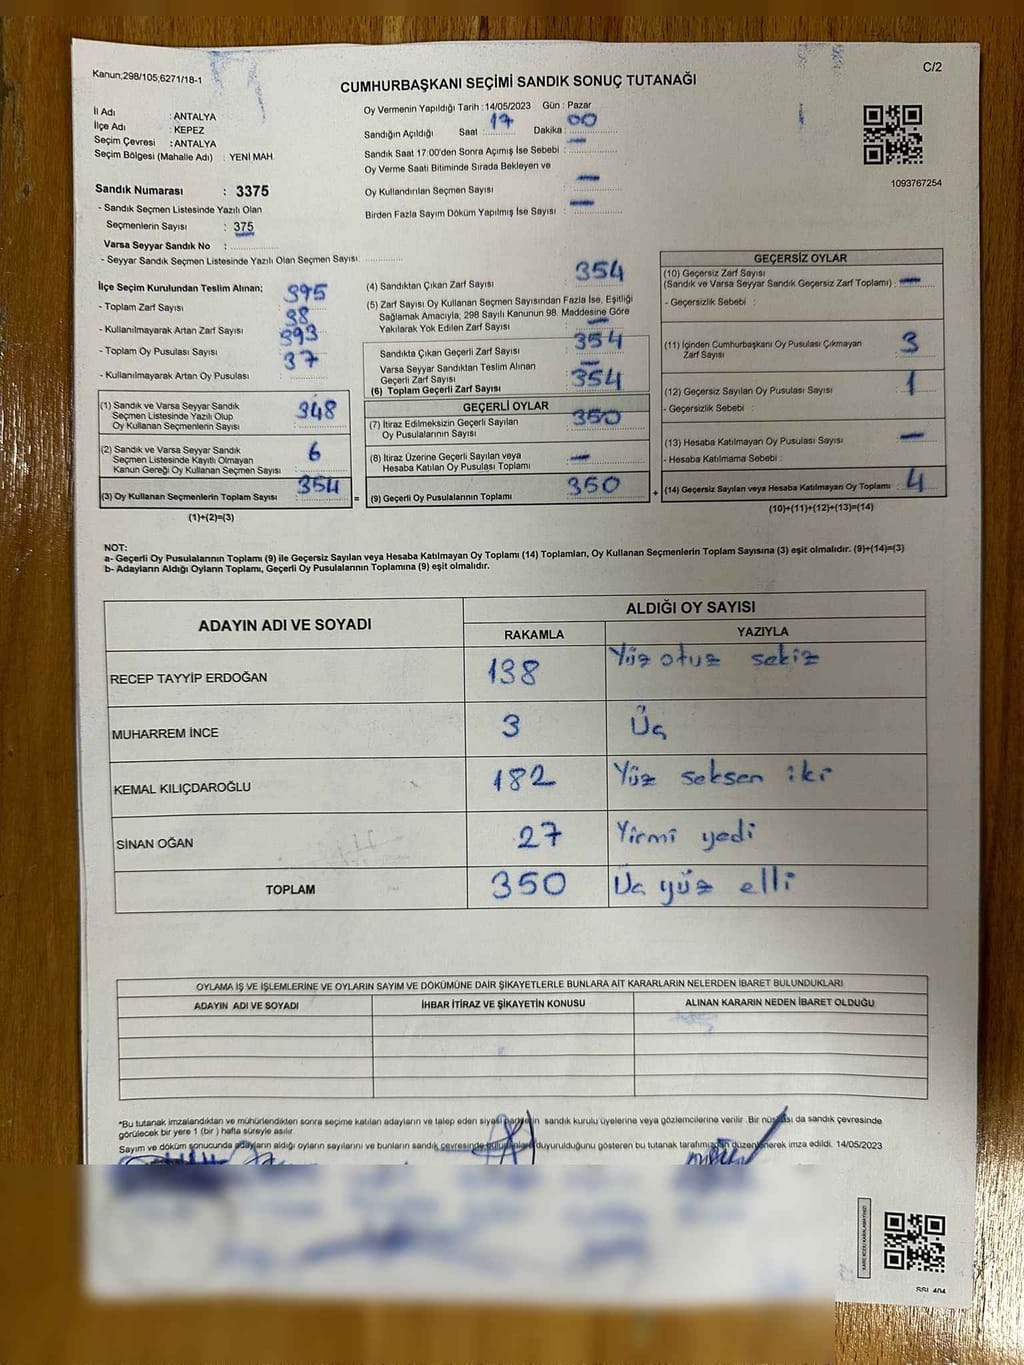 Kanun;298/105;6271/18-1
C/2
CUMHURBAŞKANI SEÇİMİ SANDIK SONUÇ TUTANAĞI
İl Adı : ANTALYA
İlçe Adı : KEPEZ
Seçim Çevresi : ANTALYA
Seçim Bölgesi (Mahalle Adı) : YENİ MAH.
Sandık Numarası : 3375
- Sandık Seçmen Listesinde Yazılı Olan
Seçmenlerin Sayısı : 375
Varsa Seyyar Sandık No :
- Seyyar Sandık Seçmen Listesinde Yazılı Olan Seçmen Sayısı:
Oy Vermenin Yapıldığı Tarih : 14/05/2023 Gün : Pazar
Sandığın Açıldığı Saat : 17 Dakika : 00
Sandık Saat 17:00'den Sonra Açımış İse Sebebi : —
Oy Verme Saati Bitiminde Sırada Bekleyen ve
Oy Kullandırılan Seçmen Sayısı : —
Birden Fazla Sayım Döküm Yapılmış İse Sayısı : —
1093767254
İlçe Seçim Kurulundan Teslim Alınan;
- Toplam Zarf Sayısı : 395
- Kullanılmayarak Artan Zarf Sayısı : 38
- Toplam Oy Pusulası Sayısı : 393
- Kullanılmayarak Artan Oy Pusulası : 37
(1) Sandık ve Varsa Seyyar Sandık
Seçmen Listesinde Yazılı Olup
Oy Kullanan Seçmenlerin Sayısı : 348
(2) Sandık ve Varsa Seyyar Sandık
Seçmen Listesinde Kayıtlı Olmayan
Kanun Gereği Oy Kullanan Seçmen Sayısı : 6
(3) Oy Kullanan Seçmenlerin Toplam Sayısı : 354
(1)+(2)=(3)
(4) Sandıktan Çıkan Zarf Sayısı : 354
(5) Zarf Sayısı Oy Kullanan Seçmen Sayısından Fazla İse, Eşitliği
Sağlamak Amacıyla; 298 Sayılı Kanunun 98. Maddesine Göre
Yakılarak Yok Edilen Zarf Sayısı : —
Sandıkta Çıkan Geçerli Zarf Sayısı : 354
Varsa Seyyar Sandıktan Teslim Alınan
Geçerli Zarf Sayısı : —
(6) Toplam Geçerli Zarf Sayısı : 354
GEÇERLİ OYLAR
(7) İtiraz Edilmeksizin Geçerli Sayılan
Oy Pusulalarının Sayısı : 350
(8) İtiraz Üzerine Geçerli Sayılan veya
Hesaba Katılan Oy Pusulası Toplamı : —
= (9) Geçerli Oy Pusulalarının Toplamı : 350 +
GEÇERSİZ OYLAR
(10) Geçersiz Zarf Sayısı
(Sandık ve Varsa Seyyar Sandık Geçersiz Zarf Toplamı) : —
- Geçersizlik Sebebi :
(11) İçinden Cumhurbaşkanı Oy Pusulası Çıkmayan
Zarf Sayısı : 3
(12) Geçersiz Sayılan Oy Pusulası Sayısı : 1
- Geçersizlik Sebebi :
(13) Hesaba Katılmayan Oy Pusulası Sayısı : —
- Hesaba Katılmama Sebebi :
(14) Geçersiz Sayılan veya Hesaba Katılmayan Oy Toplamı : 4
(10)+(11)+(12)+(13)=(14)
NOT:
a- Geçerli Oy Pusulalarının Toplamı (9) ile Geçersiz Sayılan veya Hesaba Katılmayan Oy Toplamı (14) Toplamları, Oy Kullanan Seçmenlerin Toplam Sayısına (3) eşit olmalıdır. (9)+(14)=(3)
b- Adayların Aldığı Oyların Toplamı, Geçerli Oy Pusulalarının Toplamına (9) eşit olmalıdır.
ADAYIN ADI VE SOYADI ALDIĞI OY SAYISI
RAKAMLA YAZIYLA
RECEP TAYYİP ERDOĞAN 138 Yüz otuz sekiz
MUHARREM İNCE 3 Üç
KEMAL KILIÇDAROĞLU 182 Yüz seksen iki
SİNAN OĞAN 27 Yirmi yedi
TOPLAM 350 Üç yüz elli
OYLAMA İŞ VE İŞLEMLERİNE VE OYLARIN SAYIM VE DÖKÜMÜNE DAİR ŞİKAYETLERLE BUNLARA AİT KARARLARIN NELERDEN İBARET BULUNDUKLARI
ADAYIN ADI VE SOYADI İHBAR İTİRAZ VE ŞİKAYETİN KONUSU ALINAN KARARIN NEDEN İBARET OLDUĞU
*Bu tutanak imzalandıktan ve mühürlendikten sonra seçime katılan adayların ve talep eden siyasi partilerin sandık kurulu üyelerine veya gözlemcilerine verilir. Bir nüshası da sandık çevresinde
görülecek bir yere 1 (bir ) hafta süreyle asılır.
Sayım ve döküm sonucunda adayların aldığı oyların sayılarını ve bunların sandık çevresinde duyurulduğunu gösteren bu tutanak tarafımızdan düzenlenerek imza edildi. 14/05/2023